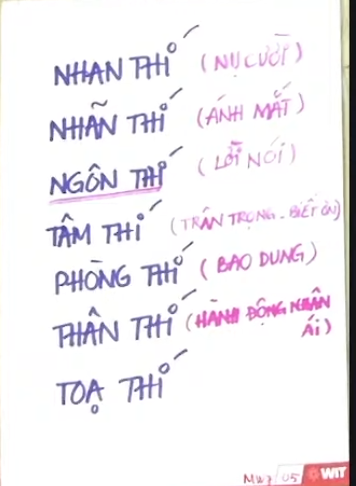 NHAN THÍ (NỤ CƯỜI)
NHÃN THÍ (ÁNH MẮT)
NGÔN THÍ (LỜI NÓI)
TÂM THÍ (TRÂN TRỌNG - BIẾT ƠN)
PHÒNG THÍ (BAO DUNG)
THÂN THÍ (HÀNH ĐỘNG NHÂN
ÁI)
TOẠ THÍ
05 WIT